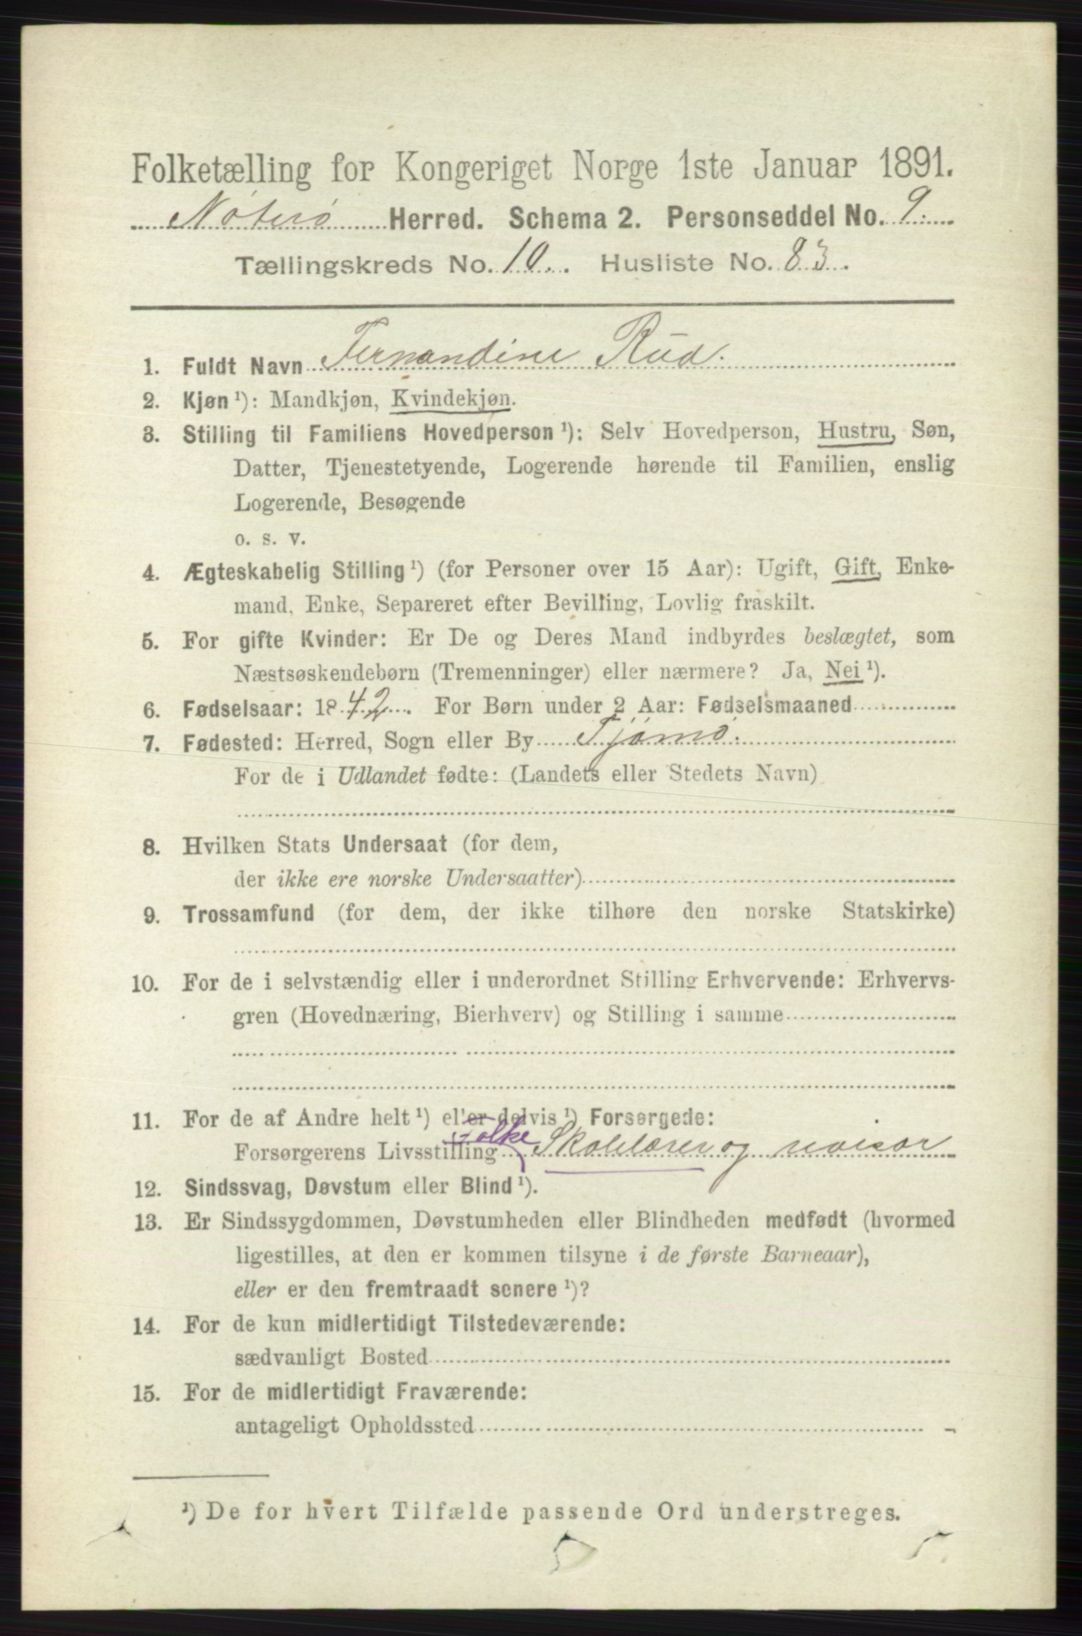 Folketælling for Kongeriget Norge 1ste Januar 1891.
Nøterø Herred. Schema 2. Personseddel No. 9.
Tællingskreds No. 10. Husliste No. 83.
1. Fuldt Navn Fernandine Rud.
2. Kjøn ¹): Mandkjøn, Kvindekjøn.
3. Stilling til Familiens Hovedperson ¹): Selv Hovedperson, Hustru, Søn,
Datter, Tjenestetyende, Logerende hørende til Familien, enslig
Logerende, Besøgende
o. s. v.
4. Ægteskabelig Stilling ¹) (for Personer over 15 Aar): Ugift, Gift, Enke-
mand, Enke, Separeret efter Bevilling, Lovlig fraskilt.
5. For gifte Kvinder: Er De og Deres Mand indbyrdes beslægtet, som
Næstsøskendebørn (Tremenninger) eller nærmere? Ja, Nei ¹).
6. Fødselsaar: 1842. For Børn under 2 Aar: Fødselsmaaned
7. Fødested: Herred, Sogn eller By Tjømø.
For de i Udlandet fødte: (Landets eller Stedets Navn)
8. Hvilken Stats Undersaat (for dem,
der ikke ere norske Undersaatter)
9. Trossamfund (for dem, der ikke tilhøre den norske Statskirke)
10. For de i selvstændig eller i underordnet Stilling Erhvervende: Erhvervs-
gren (Hovednæring, Bierhverv) og Stilling i samme
11. For de af Andre helt ¹) eller delvis ¹) Forsørgede:
Forsørgerens Livsstilling Folke Skolelærer og revisor
12. Sindssvag, Døvstum eller Blind ¹).
13. Er Sindssygdommen, Døvstumheden eller Blindheden medfødt (hvormed
ligestilles, at den er kommen tilsyne i de første Barneaar),
eller er den fremtraadt senere ¹)?
14. For de kun midlertidigt Tilstedeværende:
sædvanligt Bosted
15. For de midlertidigt Fraværende:
antageligt Opholdssted
¹) De for hvert Tilfælde passende Ord understreges.